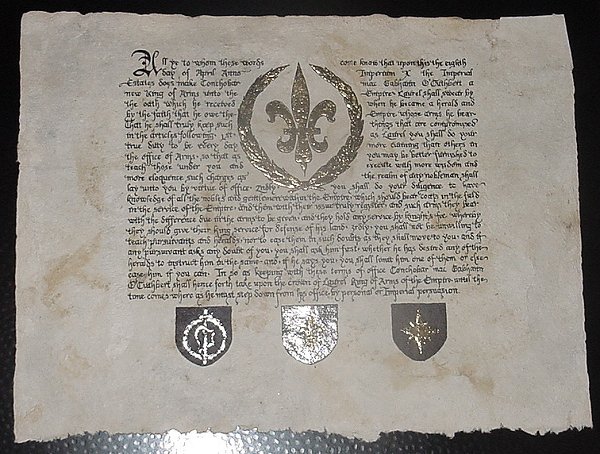 All ye to whom these words come know that upon this the eighth
day of April Anno Imperium X the Imperial
Estates does make Conchobar mac Cathain O'Cuthbert a
new King of Arms unto the Empire Laurel shall swear by
the oath which he received when he became a herald and
by the faith that he owe the Empire whose arms he bear
That he shall truly keep such things that are comprised
in the articles following 1st as Laurel you shall do your
true duty to be every day more cunning than others in
the office of Arms so that as you may be better furnished to
teach those under you and execute with more wisdom and
more eloquence such charges as the realm of any nobleman shall
lay unto you by virtue of office 2ndly you shall do your diligence to have
knowledge of all the nobles and gentlemen within the Empire which should bear coats in the field
in the service of the Empire and them with their issue truly register and such arms they bear
with the difference due in the arms to be given and they hold any service by knights fee whereby
they should give their King service for defense of his land 3rdly you shall not be unwilling to
teach pursuivants and heralds nor to ease them in such doubts as they shall move to you and if
any pursuivant asks any doubt of you you shall ask him first whether he has desired any of the
heralds to instruct him in the same and if he says you shall limit him one of them or else
ease him if you can In so as keeping with these terms of office Conchobar mac Cathain
O'Cuthbert shall hence forth take upon the crown of Laurel King of Arms of the Empire until the
time comes where as he must step down from his office by personal or Imperial persuasion